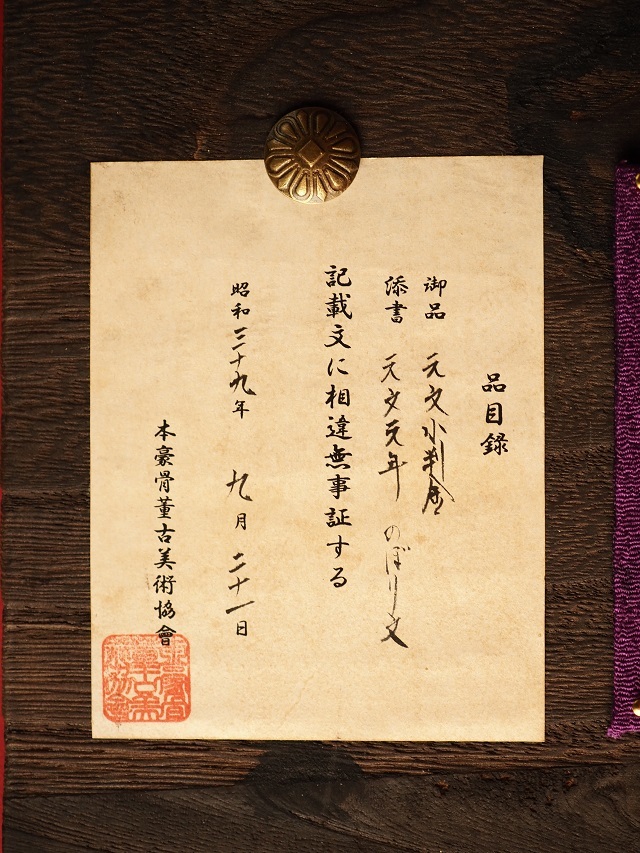 品目録
御品 元文小判金
添書 元文元年 のぼり文
記載文に相違無事証する
昭和三十九年 九月 二十一日
本豪骨董古美術協會